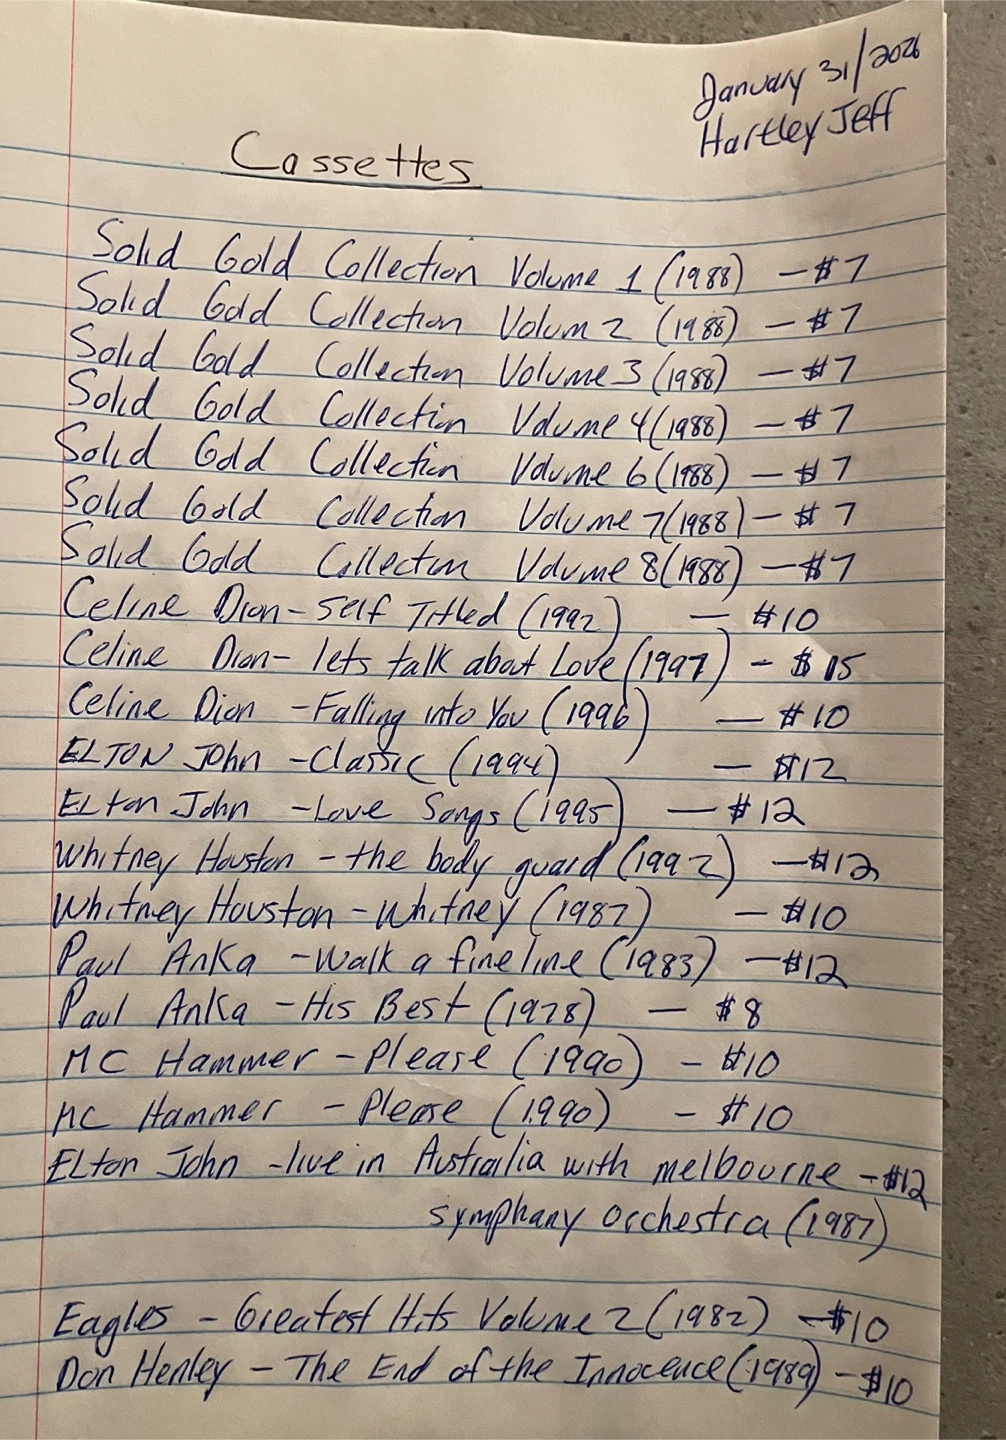 January 31/2026
Hartley Jeff
Cassettes
Solid Gold Collection Volume 1 (1988) - $7
Solid Gold Collection Volum 2 (1988) - $7
Solid Gold Collection Volume 3 (1988) - $7
Solid Gold Collection Volume 4 (1988) - $7
Solid Gold Collection Volume 6 (1988) - $7
Solid Gold Collection Volume 7 (1988) - $7
Solid Gold Collection Volume 8 (1988) - $7
Celine Dion - Self Titled (1992) - $10
Celine Dion - lets talk about Love (1997) - $15
Celine Dion - Falling into You (1996) - $10
ELTON John - Classic (1994) - $12
ELton John - Love Songs (1995) - $12
Whitney Houston - the body guard (1992) - $12
Whitney Houston - Whitney (1987) - $10
Paul Anka - Walk a fine line (1983) - $12
Paul Anka - His Best (1978) - $8
MC Hammer - Please (1990) - $10
MC Hammer - Please (1990) - $10
ELton John - live in Australia with melbourne - $12
symphany orchestra (1987)
Eagles - Greatest Hits Volume 2 (1982) - $10
Don Henley - The End of the Innocence (1989) - $10